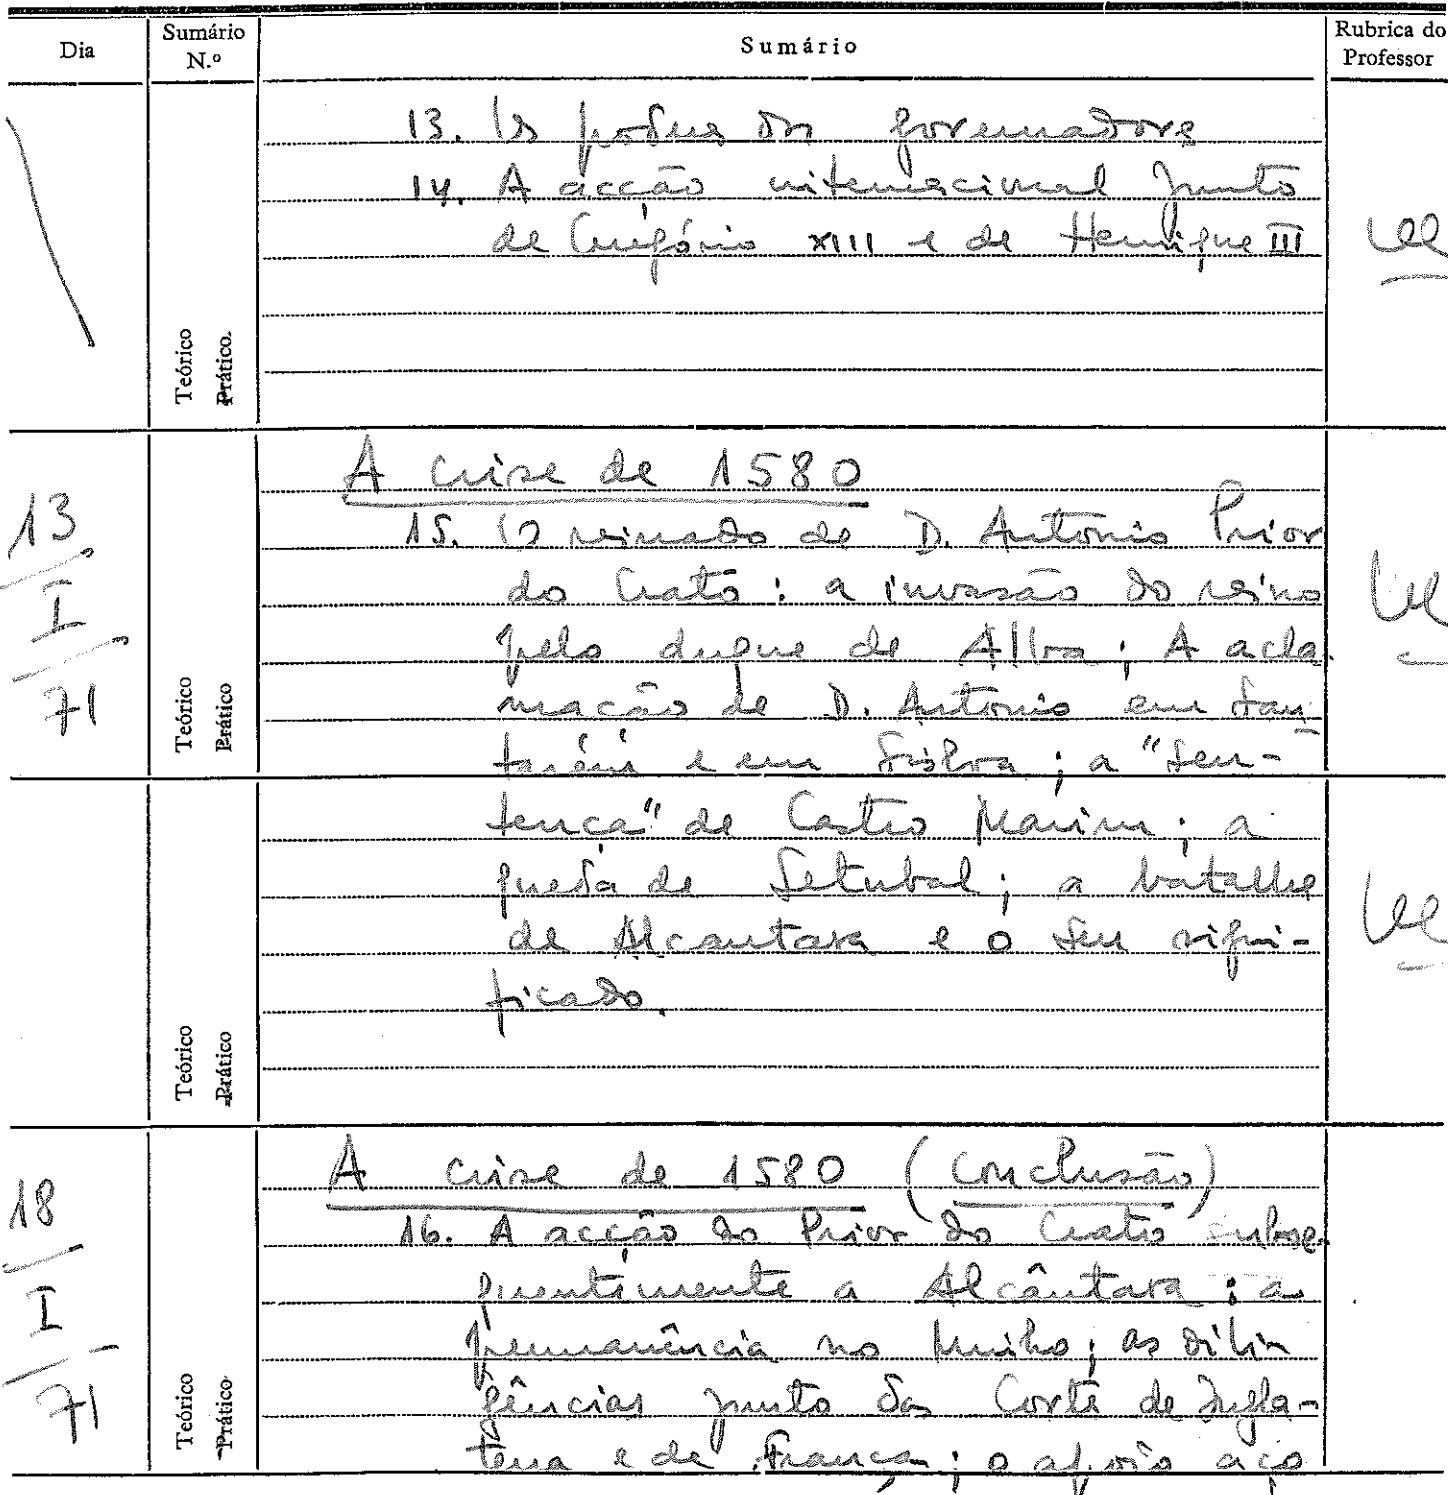 Dia
Sumário N.º
Sumário
Rubrica do Professor
13. Os poderes dos governadores
14. A acção internacional junto
de Gregório XIII e de Henrique III
Teórico
Prático
A crise de 1580
13
I
71
15. O reinado de D. Antonio Prior
do Crato: a invasão do reino
pelo duque de Alba; A acla
mação de D. Antonio em San-
tarém e em Lisboa; a "Sen-
Teórico
Prático
tença" de Castro Marim; a
queda de Setubal; a batalha
de Alcantara e o seu signi-
ficado.
Teórico
Prático
A crise de 1580 (Conclusão)
18
I
71
16. A acção do Prior do Crato subse
quentemente a Alcântara: a
permanência no Minho; as dili
gências junto das Corte de Ingla-
terra e de França; o apoio aço
Teórico
Prático